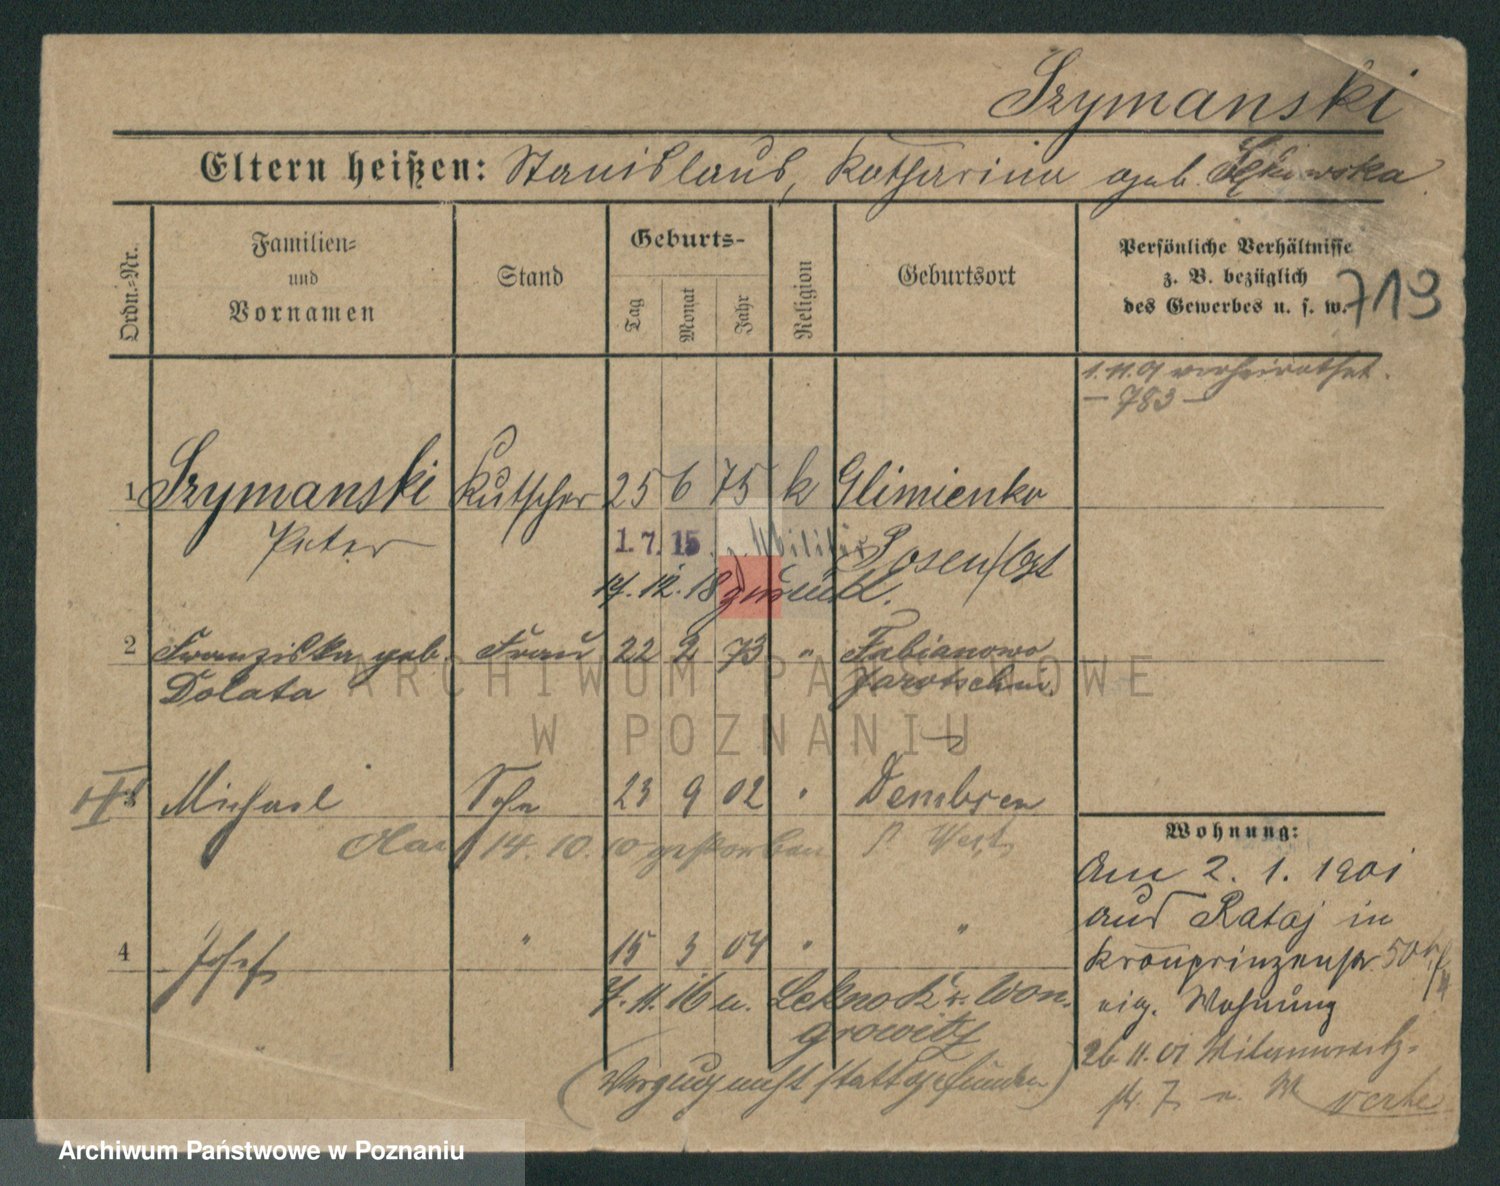 Szymanski
Eltern heißen: Stanislaus, Katharina geb.
Ordn.-Nr.
Familien-
und
Vornamen
Stand
Geburts-
Tag
Monat
Jahr
Religion
Geburtsort
Persönliche Verhältnisse
z. B. bezüglich
des Gewerbes u. s. w.
719
1.11.01 verheirathet.
– 783 –
1 Szymanski Kutscher 25 6 75 k Glimienko
Peter
1. 7. 15. z. Militär Posen/Ost
17. 12. 18 zurück.
2 Franziska geb. Frau 22 2 73 " Fabianowo
Dolata Jarotschin
3 Michael Sohn 23 9 02 " Dembsen
14. 10. 10 gestorben P. West
4 Josef " 15 3 04 " "
7. 11. 16 n. Lekno Kr. Won-
growitz
(Verzug nicht stattgefunden)
Wohnung:
Am 2. 1. 1901
aus Rataj in
Kronprinzenstr 50
eig. Wohnung
26 11. 01
str. 7
ARCHIWUM PAŃSTWOWE
W POZNANIU
Archiwum Państwowe w Poznaniu